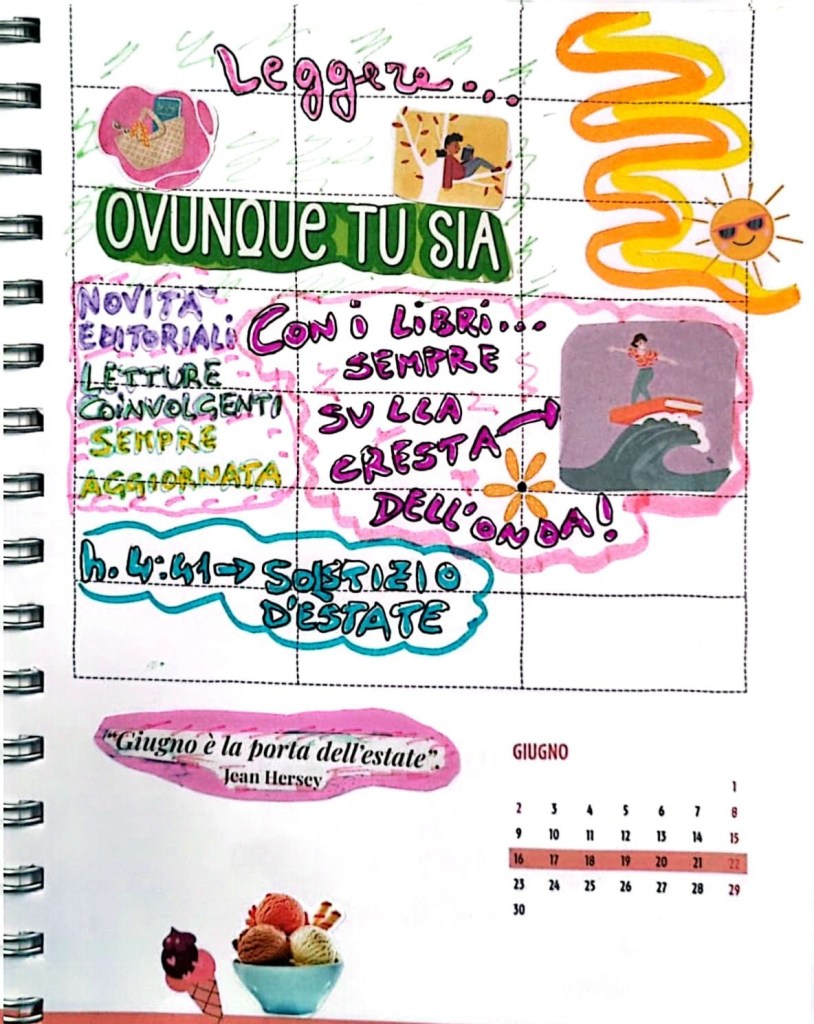 Leggere...
OVUNQUE TU SIA
NOVITÀ
EDITORIALI
LETTURE
COINVOLGENTI
SEMPRE
AGGIORNATA
CON I LIBRI...
SEMPRE
SULLA
CRESTA
DELL'ONDA!
h. 4:41 → SOLSTIZIO
D'ESTATE
"Giugno è la porta dell'estate".
Jean Hersey
GIUGNO
1
2 3 4 5 6 7 8
9 10 11 12 13 14 15
16 17 18 19 20 21 22
23 24 25 26 27 28 29
30